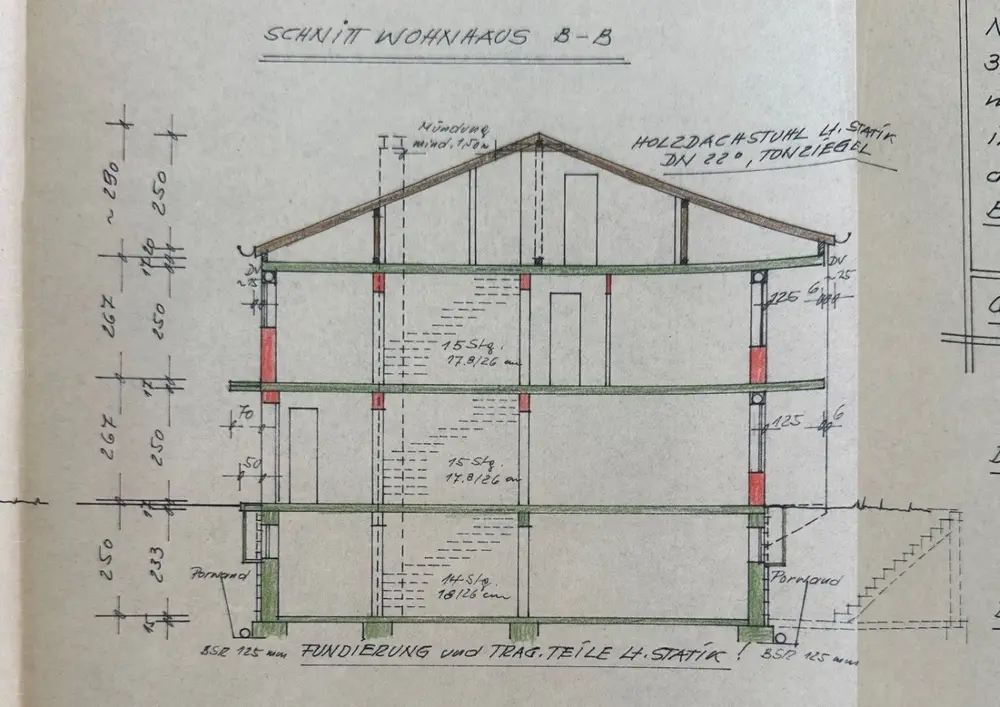 SCHNITT WOHNHAUS B-B
Mündung
mind. 1,50m
HOLZDACHSTUHL Lt. STATIK
DN 22°, TONZIEGEL
~290
250
17 20
DV
DV
~25
267
250
125
6
15 Stg.
17.8/26 cm
17
70
125
6
267
250
50
15 Stg.
17.8/26 cm
17
250
233
Porwand
14 Stg.
18/26 cm
Porwand
15
BSR 125 mm
FUNDIERUNG und TRAG.TEILE Lt. STATIK !
BSR 125 mm